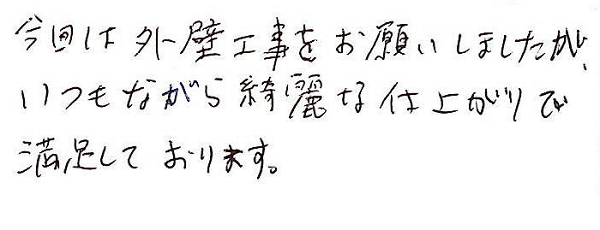 今回は外壁工事をお願いしましたが、
いつもながら綺麗な仕上がりで
満足しております。